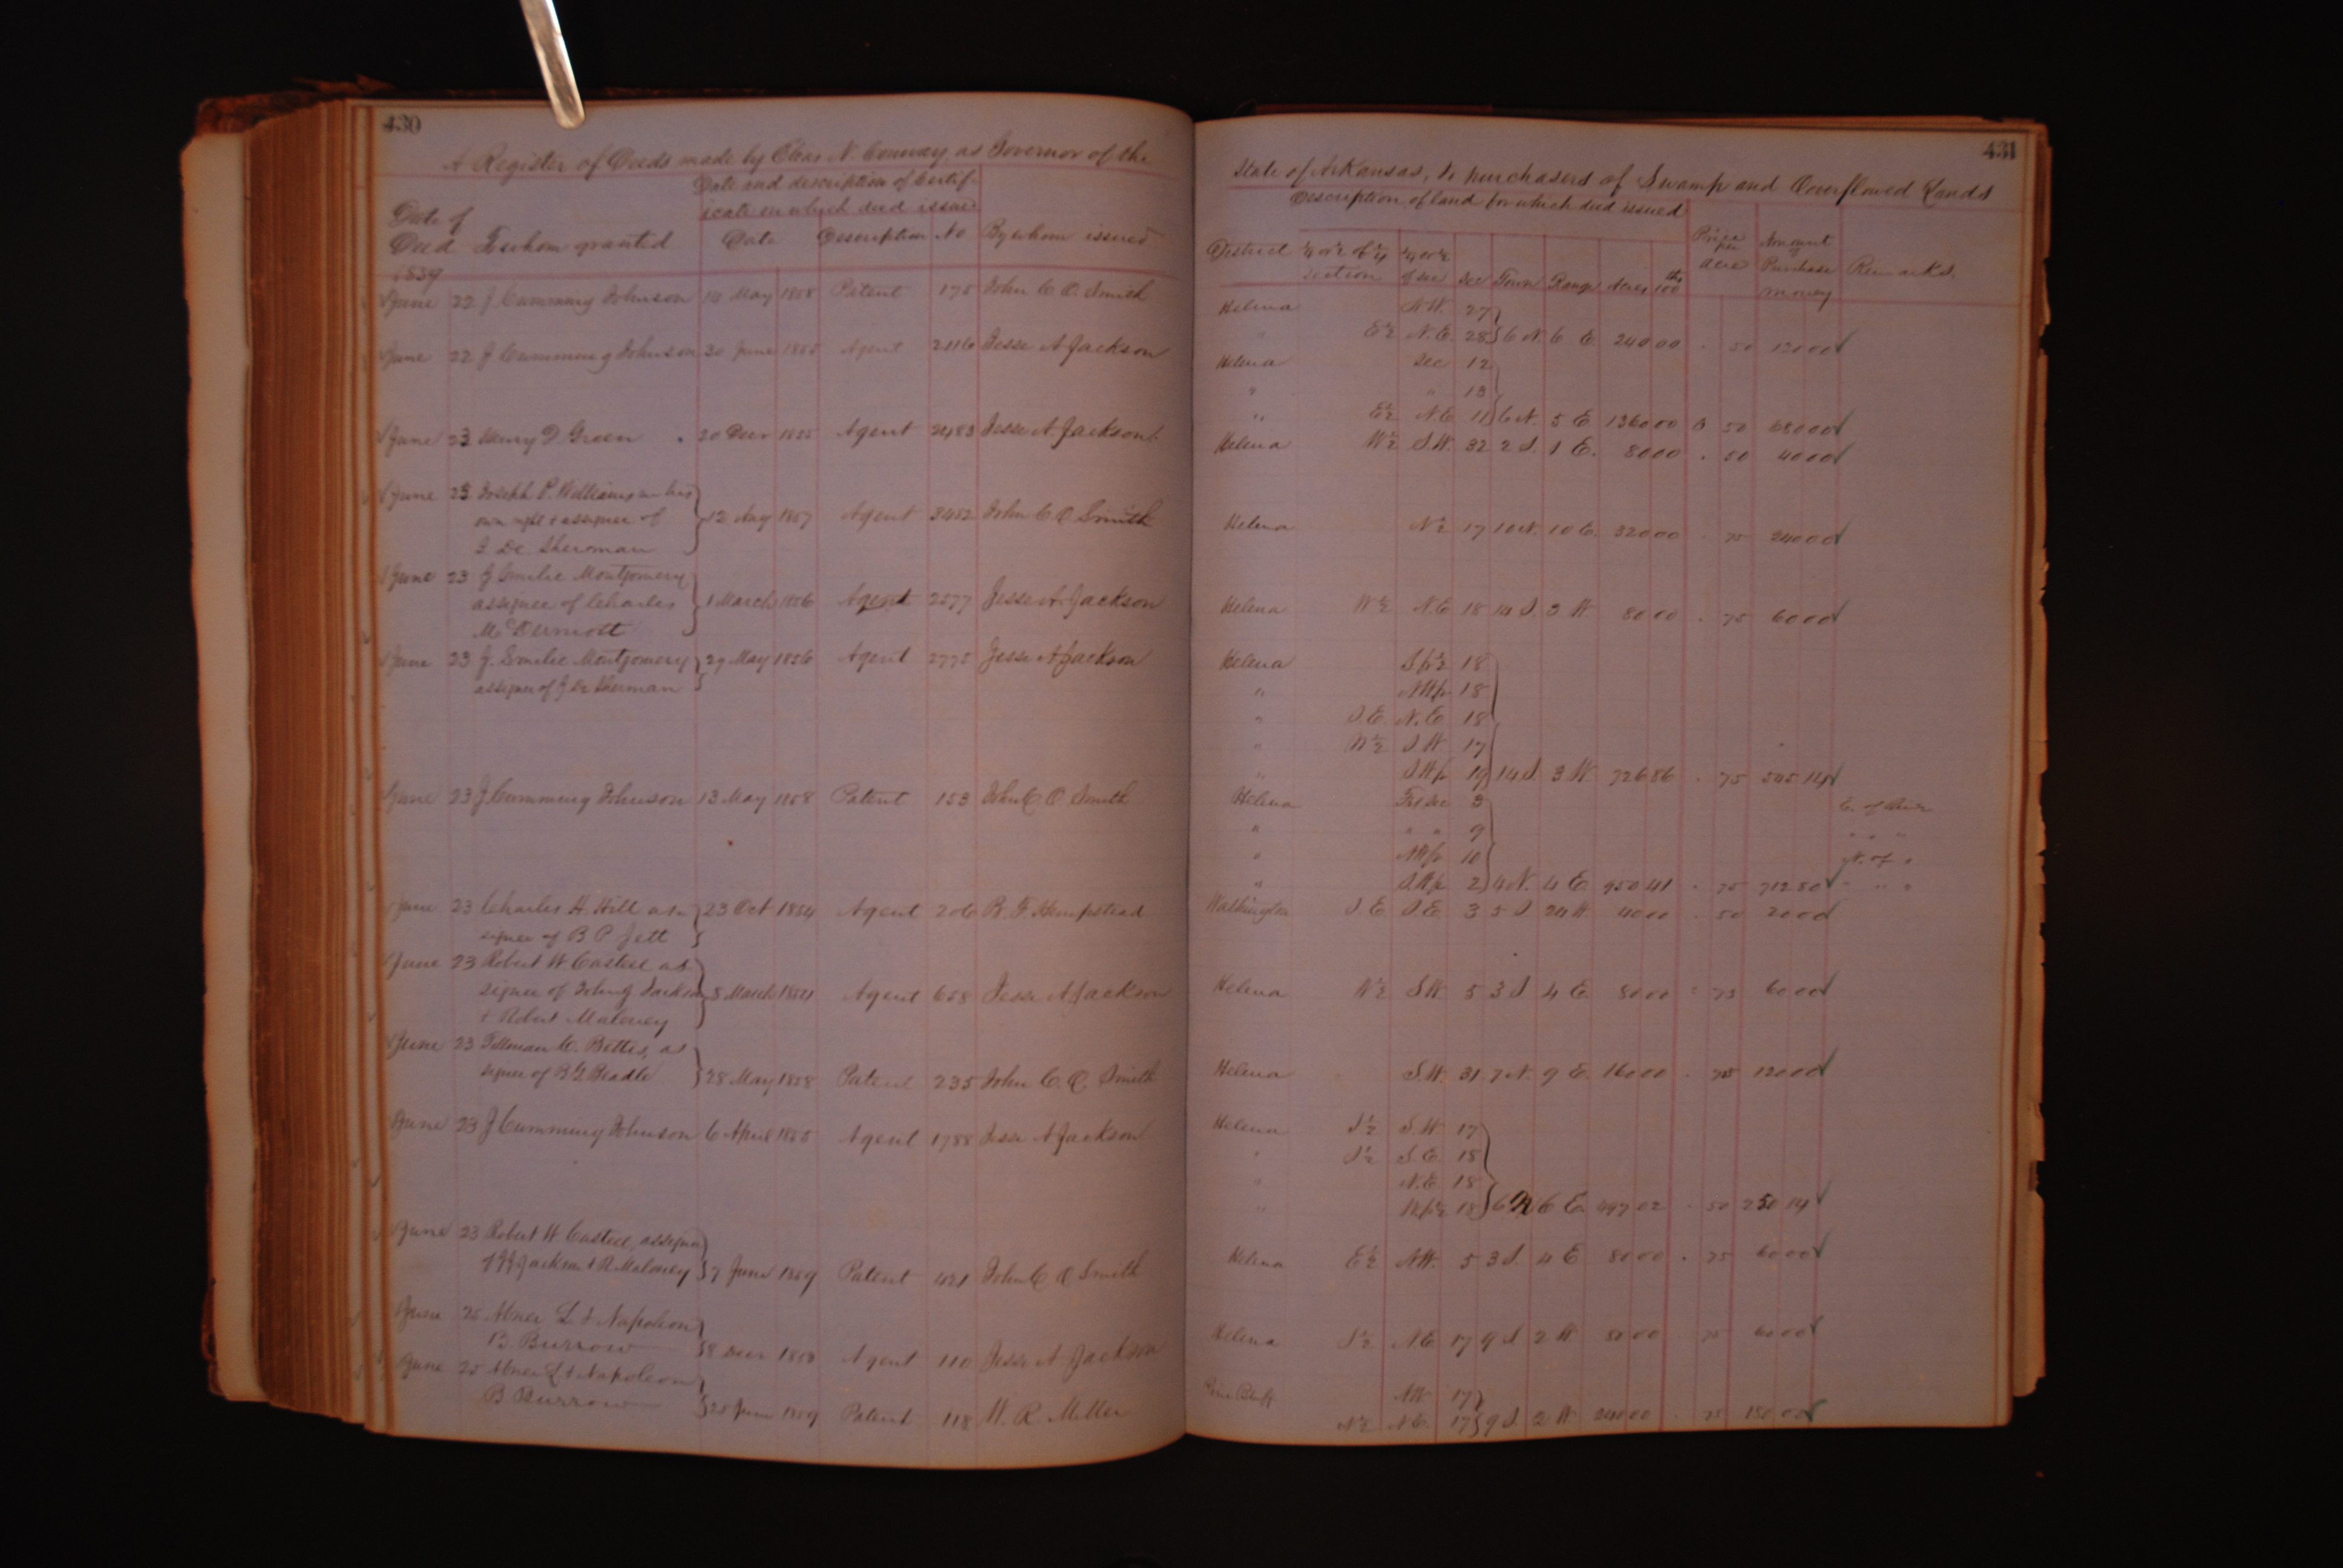 430
A Register of Deeds made by Elias N. Conway as Governor of the
Date and description of Certif-
icate on which deed issued
Date of
Deed To whom granted Date Description No By whom issued
1859
June 22 J Cumming Johnson 14 May 1858 Patent 175 John C. O. Smith
June 22 J Cumming Johnson 30 June 1855 Agent 2116 Jesse A Jackson
June 23 Henry D Green 20 Decr 1855 Agent 2483 Jesse A. Jackson
June 23 Joseph P. Williams in his
own right & assignee of 12 Aug 1857 Agent 3452 John C. O. Smith
J. De Sherman
June 23 J Smilie Montgomery
assignee of Charles 1 March 1856 Agent 2577 Jesse A. Jackson
McDermott
June 23 J. Smilie Montgomery 29 May 1856 Agent 2775 Jesse A Jackson
assignee of J De Sherman
June 23 J Cumming Johnson 13 May 1858 Patent 153 John C O Smith
June 23 Charles H. Hill as- 23 Oct 1854 Agent 206 B. F. Hempstead
signee of B. P. Jett
June 23 Robert W Casteel as
signee of John J Jackson 8 March 1854 Agent 658 Jesse A Jackson
& Robert Maloney
June 23 Tillman C. Bettis, as
signee of B G Beadle 28 May 1858 Patent 235 John C. O. Smith
June 23 J Cumming Johnson 6 April 1855 Agent 1788 Jesse A Jackson
June 23 Robert W Casteel, assignee
of J J Jackson & R Maloney 7 June 1859 Patent 421 John C O Smith
June 25 Abner L. & Napoleon
B Burrow 8 Decr 1853 Agent 110 Jesse A Jackson
June 25 Abner L & Napoleon
B Burrow 25 June 1859 Patent 118 W. R. Miller
431
State of Arkansas, to purchasers of Swamp and Overflowed Lands
Description of land for which deed issued
District ¼ or ½ of ¼ section ¼ or ½ of sec Sec Town Range Acres 100ths Price per acre Amount of Purchase money Remarks.
Helena N.W. 27
" E½ N.E. 28 6 N. 6 E 240 00 . 50 120 00
Helena Sec 12
" " 13
" E½ N.E 11 6 N. 5 E. 1360 00 50 680 00
Helena W½ S.W. 32 2 S. 1 E. 80 00 . 50 40 00
Helena N½ 17 10 N. 10 E. 320 00 . 75 240 00
Helena W½ N.E 18 14 S. 3 W 80 00 . 75 60 00
Helena S fr ½ 18
" NW fr 18
" S.E. N.E 18
" N½ S.W. 17
" SW fr 19 14 S 3 W. 726 86 . 75 545 14
Helena Frl Sec 3 E. of River
" " " 9 " " "
" NW fr 10 N. of "
" S.W fr 2 4 N. 4 E 950 41 . 75 712 80 " " "
Washington S.E S.E. 3 5 S 24 W. 40 00 . 50 20 00
Helena W½ S.W. 5 3 S 4 E 80 00 75 60 00
Helena S.W. 31 7 N. 9 E. 160 00 . 75 120 00
Helena S½ S.W 17
" S½ S.E. 18
" N.E. 18
" N fr ½ 18 6 N 6 E. 499 02 . 50 250 14
Helena E½ NW. 5 3 S. 4 E 80 00 . 75 60 00
Helena S½ N.E 17 9 S 2 W 80 00 75 60 00
Pine Bluff NW. 17
N½ N.E. 17 9 S. 2 W. 240 00 . 75 180 00